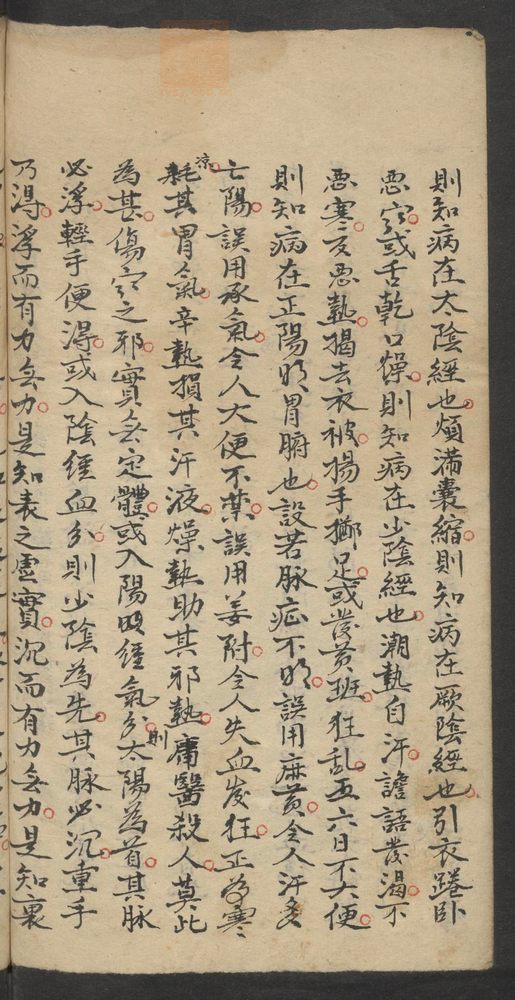 則知病在太陰經也煩滿囊縮則知病在厥陰經也引衣踡卧
惡寒或舌乾口燥則知病在少陰經也潮熱自汗譫語發渴不
惡寒反惡熱揭去衣被揚手擲足或發黃班狂乱五六日不大便
則知病在正陽明胃腑也設若脉症不明誤用麻黃令人汗多
亡陽誤用承氣令人大便不禁誤用姜附令人失血發狂正為寒
涼耗其胃氣辛熱損其汗液燥熱助其邪熱庸醫殺人莫此
為甚傷寒之邪實無定體或入陽明經氣分則太陽為首其脉
必浮輕手便得或入陰經血分則少陰為先其脉必沉重手
乃得浮而有力無力是知表之虛實沉而有力無力是知裏